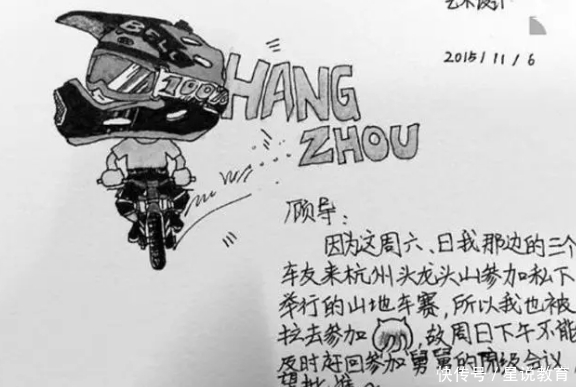 艺术设计
2015/11/6
BELL
100%
HANG
ZHOU
顾导:
因为这周六、日我那边的三个
车友来杭州头龙头山参加松下
举行的山地车赛,所以我也被
拉去参加,故周日下午不能
及时赶回参加舅舅的院级会议
望批准。
快传号/星说教育